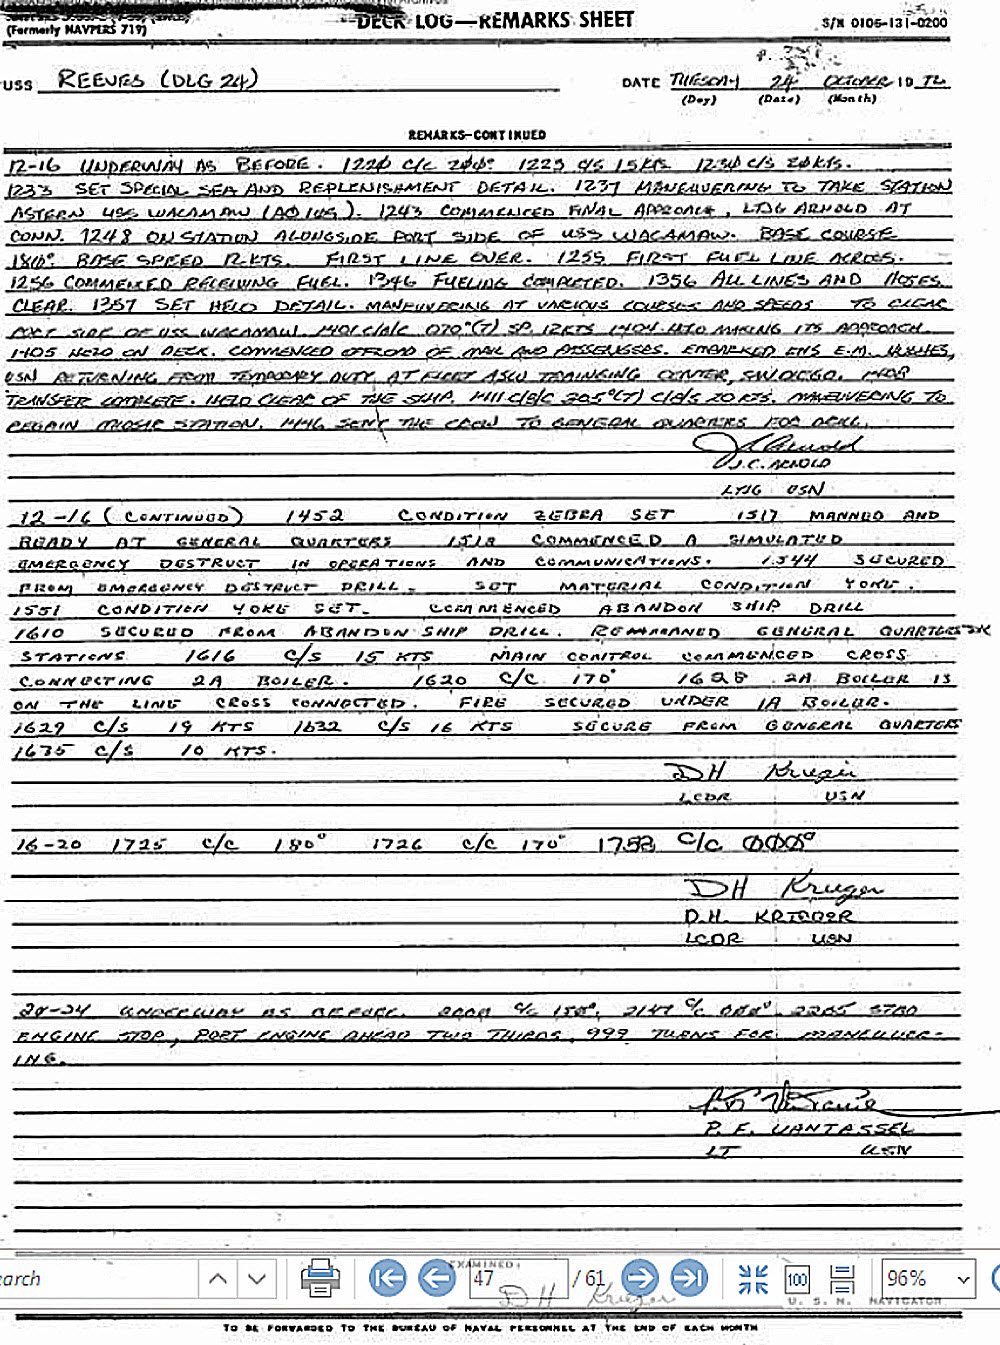 (Formerly NAVPERS 719)
DECK LOG—REMARKS SHEET
S/N 0105-131-0200
USS REEVES (DLG 24)
DATE TUESDAY 24 OCTOBER 19 72
(Day) (Date) (Month)
REMARKS—CONTINUED
12-16 UNDERWAY AS BEFORE. 1220 C/C 200° 1223 C/S 15 KTS 1230 C/S 20 KTS.
1233 SET SPECIAL SEA AND REPLENISHMENT DETAIL. 1237 MANEUVERING TO TAKE STATION
ASTERN USS WACAMAW (AO 105). 1243 COMMENCED FINAL APPROACH, LTJG ARNOLD AT
CONN. 1248 ON STATION ALONGSIDE PORT SIDE OF USS WACAMAW. BASE COURSE
180° BASE SPEED 12 KTS. FIRST LINE OVER. 1255 FIRST FUEL LINE ACROSS.
1256 COMMENCED RECEIVING FUEL. 1346 FUELING COMPLETED. 1356 ALL LINES AND HOSES
CLEAR. 1357 SET HELO DETAIL. MANEUVERING AT VARIOUS COURSES AND SPEEDS TO CLEAR
PORT SIDE OF USS WACAMAW. 1401 C/B/C 070°(T) SP 12KTS 1404 HELO MAKING ITS APPROACH.
1405 HELO ON DECK. COMMENCED OFFLOAD OF MAIL AND PASSENGERS. EMBARKED ENS E.M. HUGHES,
USN RETURNING FROM TEMPORARY DUTY AT FLEET ASW TRAINGING CENTER, SANDIEGO.
TRANSFER COMPLETE. HELO CLEAR OF THE SHIP. 1411 C/B/C 205°(T) C/B/S 20 KTS. MANEUVERING TO
REGAIN STATION. 1446 SENT THE CREW TO GENERAL QUARTERS FOR DRILL.
J.C. ARNOLD
LTJG USN
12-16 (CONTINUED) 1452 CONDITION ZEBRA SET 1517 MANNED AND
READY AT GENERAL QUARTERS 1518 COMMENCED A SIMULATED
EMERGENCY DESTRUCT IN OPERATIONS AND COMMUNICATIONS. 1544 SECURED
FROM EMERGENCY DESTRUCT DRILL. SET MATERIAL CONDITION YOKE.
1551 CONDITION YOKE SET. COMMENCED ABANDON SHIP DRILL
1610 SECURED FROM ABANDON SHIP DRILL. REMANNED GENERAL QUARTERS
STATIONS 1616 C/S 15 KTS MAIN CONTROL COMMENCED CROSS
CONNECTING 2A BOILER. 1620 C/C 170° 1628 2A BOILER IS
ON THE LINE CROSS CONNECTED. FIRE SECURED UNDER 1A BOILER.
1629 C/S 19 KTS 1632 C/S 16 KTS SECURE FROM GENERAL QUARTERS
1635 C/S 10 KTS.
DH Kruger
LCDR USN
16-20 1725 C/C 180° 1726 C/C 170° 1752 C/C 000°
DH Kruger
D.H. KRUGER
LCDR USN
20-24 UNDERWAY AS BEFORE. 2000 C/C 180°, 2147 C/C 000° 2205 STBD
ENGINE STOP, PORT ENGINE AHEAD TWO THIRDS, 999 TURNS FOR MANEUVER-
ING.
P. E. VANTASSEL
LT USN
EXAMINED:
earch
47 / 61
100
96%
DH Kruger
U. S. N. NAVIGATOR
TO BE FORWARDED TO THE BUREAU OF NAVAL PERSONNEL AT THE END OF EACH MONTH